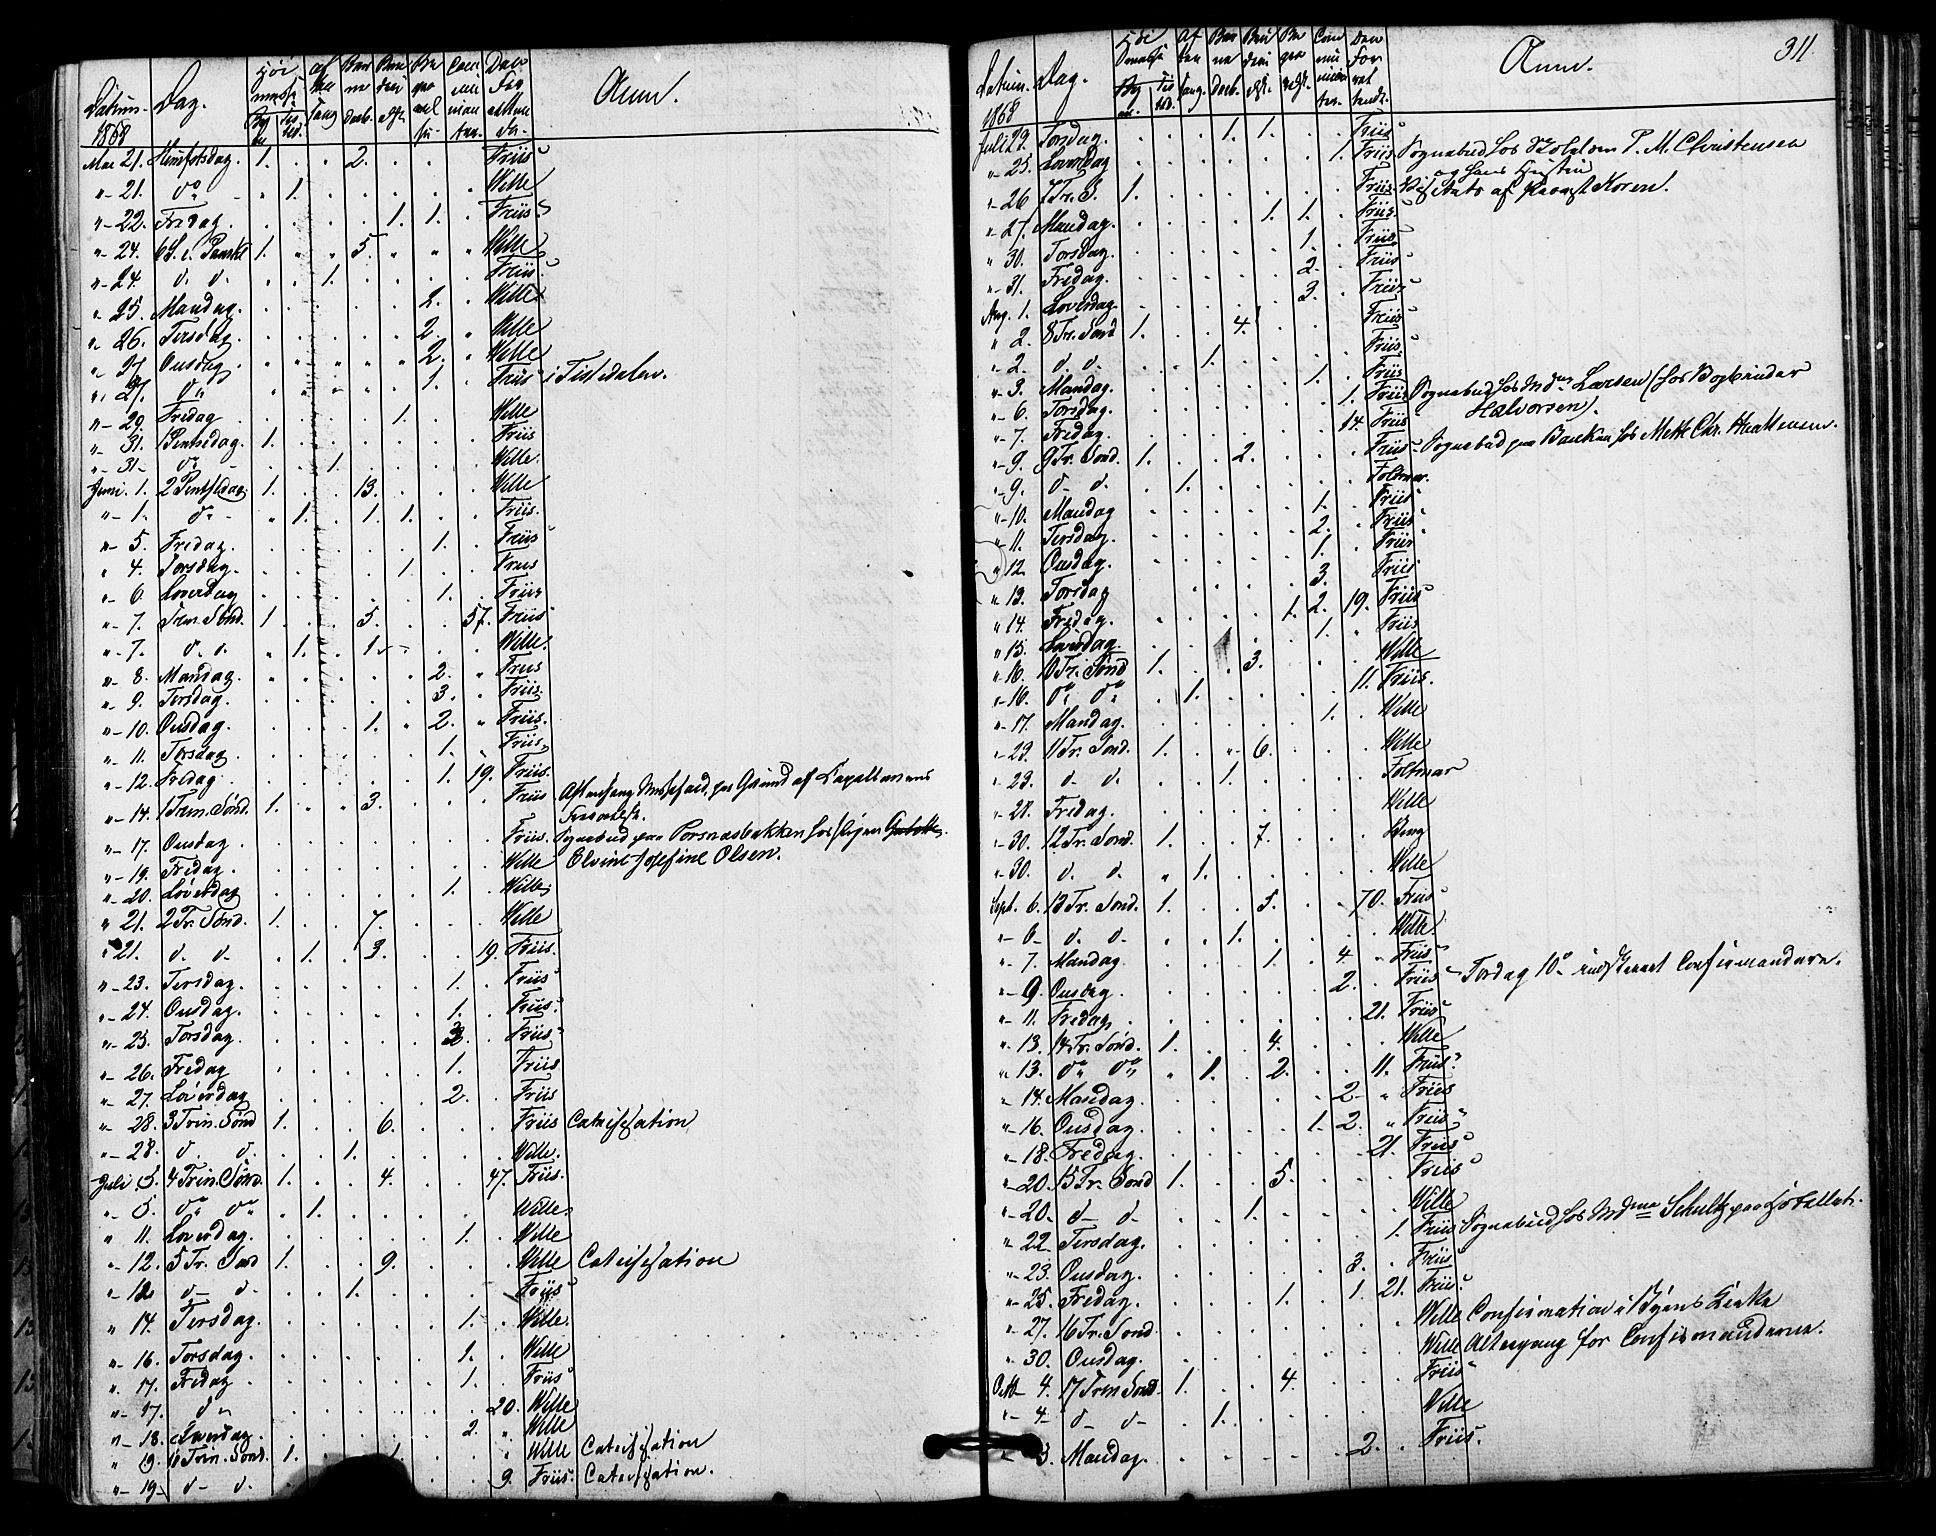 Datum. Dag. Høimesse Af ten sang Barnedaab. Anm.
1868
Mai 21. Himfartsdag. 1. . . 2. . . . Friis
"- 21. do - " 1. . . . . . Wille
"- 22. Fredag. . . . . 1. 1. . Friis
"- 24. 6 S. e. Paaske 1. " " 5. " " " Wille
"- 24. d. d. . . 1. . . . . Friis
" 25. Mandag. . . . . . 2. . Wille
" 26. Tirsdag. . . . . . 2. " Wille
"- 27 Onsdag. . " " " " 2. " Wille
"- 27. do . " " " . 1. . Friis i Tistedalen.
"- 29. Fredag . . . . 1. . . Wille
"- 31. Pintsedag. 1. . . . . . . Friis
"- 31- do - . . 1. . . . . Wille.
Juni. 1. 2 Pintsedag 1. . . 13. . . . Wille
"- 1. do - " 1. . 1. 1. . . Friis.
"- 5. Fredag. . . . . . 1. . Friis
" 4. Torsdag. . . . . 1. . . Friis
"- 6. Løverdag . . . . . 1. . Friis
"- 7. Trin. Sönd. 1 . . 5. . . 57. Friis
"- 7. d. d. " 1. . 1. - . . Wille.
"- 8. Mandag. " " . . . 2. " Friis
"- 9. Tirsdag. . . . . . 3. . Friis.
"- 10. Onsdag. . . . 1. " 2. " Friis.
"- 11. Torsdag . . . . . 1. . Friis.
"- 12. Fredag . . . . . 1. 19. Friis.
"- 14. 1 Trin. Sönd. 1. " " 3. . . . Friis Aftensang Messefald paa Grund af Capellanens
"- 17. Onsdag . . . . . . . Friis. Sognebud paa Porsnæsbakken hos Pigen
"- 19. Fredag. . . . . . . . Wille Elvine Josefine Olsen.
"- 20. Løverdag . . . . . 1. . Wille
" 21. 2 Tr. Sönd. 1. . . 7. . . . Wille
" 21. d. d. . 1. . 3. . . 19. Friis.
"- 23. Tirsdag. . . . . . 1. . Friis
"- 24. Onsdag. . . . . . 1. . Friis.
"- 25. Torsdag . . . . . 2. . Friis
"- 26. Fredag . . . . . 1. . Friis
"- 27. Løverdag . . . . . 2. . Friis
"- 28. 3 Trin. Sönd 1. . . 6. . . . Friis Catechisation
"- 28. d. d. . . 1. . . . . Wille.
Juli. 5. 4 Trin. Sönd. 1. . . 4. . . 47. Friis.
"- 5. do do . 1. . . . . . Wille.
" 11. Løverdag. . . . . . 1. . Wille
"- 12. 5 Tr. Sønd 1. . . 9. . . . Wille Catechisation
"- 12. d- d. . . 1. . . . . Friis
" 14. Tirsdag. . . . . . 1. . Wille.
"- 16. Torsdag. . . . . . 1. . Wille
" 17. Fredag . . . . . 1. . Friis
"- 17. do . . . . . . 20. Wille
"- 18. Løverdag. . . . . . 2. " Wille
" 19. 6 Trin. Sönd. 1. . . 1. . . " Wille Catechisation
"- 19- d- d. . . . 9. Friis. Catechisation.
311
Datum. Dag. Anm.
1868
Juli 23. Torsdag. . . . 1. 1. . . Friis
"- 25. Løverdag . . . . . . 1. Friis Sognebud hos Skolel. P. M. Christensen
og hans Hustru
"- 26 7 Tr. S. 1. . . . . . . Friis. Visitats af Provst Koren.
"- 27. Mandag. . . . . 1. 1. . Friis.
" 30. Torsdag. . . . . . 1. . Friis
"- 31. Fredag. . . . . . 2. . Friis
Aug. 1. Løverdag. . . . . . 3. . Friis
" 2. 8 Tr. Sönd 1. . . 4. . . . Friis
"- 2. d. d. . . 1. . . . . Friis.
"- 3. Mandag. . . . . . 1. . Friis
"- 6. Torsdag. . . . . . . 1. Friis Sognebud hos Mdm Larsen (hos Bogbinder
Halvorsen).
"- 7. Fredag. . . . . . . 14. Friis
"- 9. 9 Tr. Sönd. 1. . . 2. . . . Friis- Sognebud paa Banken hos Mette Chr. Mathiesen.
"- 9. d- d. . 1. . . . . . Foltmar.
"- 10. Mandag . . . . . 1. . Friis
" 11. Tirsdag. . . . . . 2. . Friis
" 12. Onsdag. . . . . . 1. . Friis
" 13. Torsdag . . . . . 3. . Friis
" 14. Fredag. . . . . 1. 2. 19. Friis
" 15. Løverdag. . . . . . 1. " Friis
"- 16. 10 Tr. Sönd 1. . . 3. . . . Wille
"- 16. do do . 1. . . . . 11. Friis.
"- 17. Mandag. . . . . . 1. . Wille
"- 23. 11 Tr. Sönd. 1. . " 6. . . . Wille
" 23. d- d. . . 1. . . . . Foltmar
"- 28. Fredag. . . . . . . . Wille
"- 30. 12 Tr. Sönd. 1. . . 7. . . . Krug
"- 30. d. d. " 1. . . . . . Wille
Sept. 6. 13 Tr. Sönd. 1. . . 5. . . 70. Friis
"- 6- d. d. . . 1. . . . . Wille.
"- 7. Mandag. . . . . 1. . 4 " Friis
"- 9. Onsdag. . . . . . 2. . Friis - Torsdag 10de indskrevet Confirmanderne.
"- 11. Fredag. . . . . . . 21. Friis
"- 13. 14 Tr. Sönd. 1. . . 4. . . . Wille
"- 13. do do " 1. . 2. . . 11. Friis.
" 14. Mandag. . . . . . 2- " Friis
"- 16. Onsdag. . . . . 1. 2. " Friis
"- 18. Fredag. . . . . . . 21. Friis
"- 20. 15 Tr. Sönd 1. . . 5. . . . Friis
"- 20. d- d. . . 1. . . . . Wille
" 22 Tirsdag. . . . . . . 1. Friis Sognebud hos Mdme Schultz paa Hotellet.
"- 23. Onsdag. . . . . . 3. . Friis
"- 25. Fredag. . . . . 1. . 1. 21. Friis.
"- 27. 16 Tr. Sönd. . . . . . . . Wille Confirmation i Byens Kirke
" 30. Onsdag. . . . . . . . Wille Altergang for Confirmanderne.
Octb- 4. 17 Trin Sönd. 1. . . 4. . . . Friis
"- 4- d- d- . 1. . . . . . Wille
Mandag. . . . . . 2. . Friis.